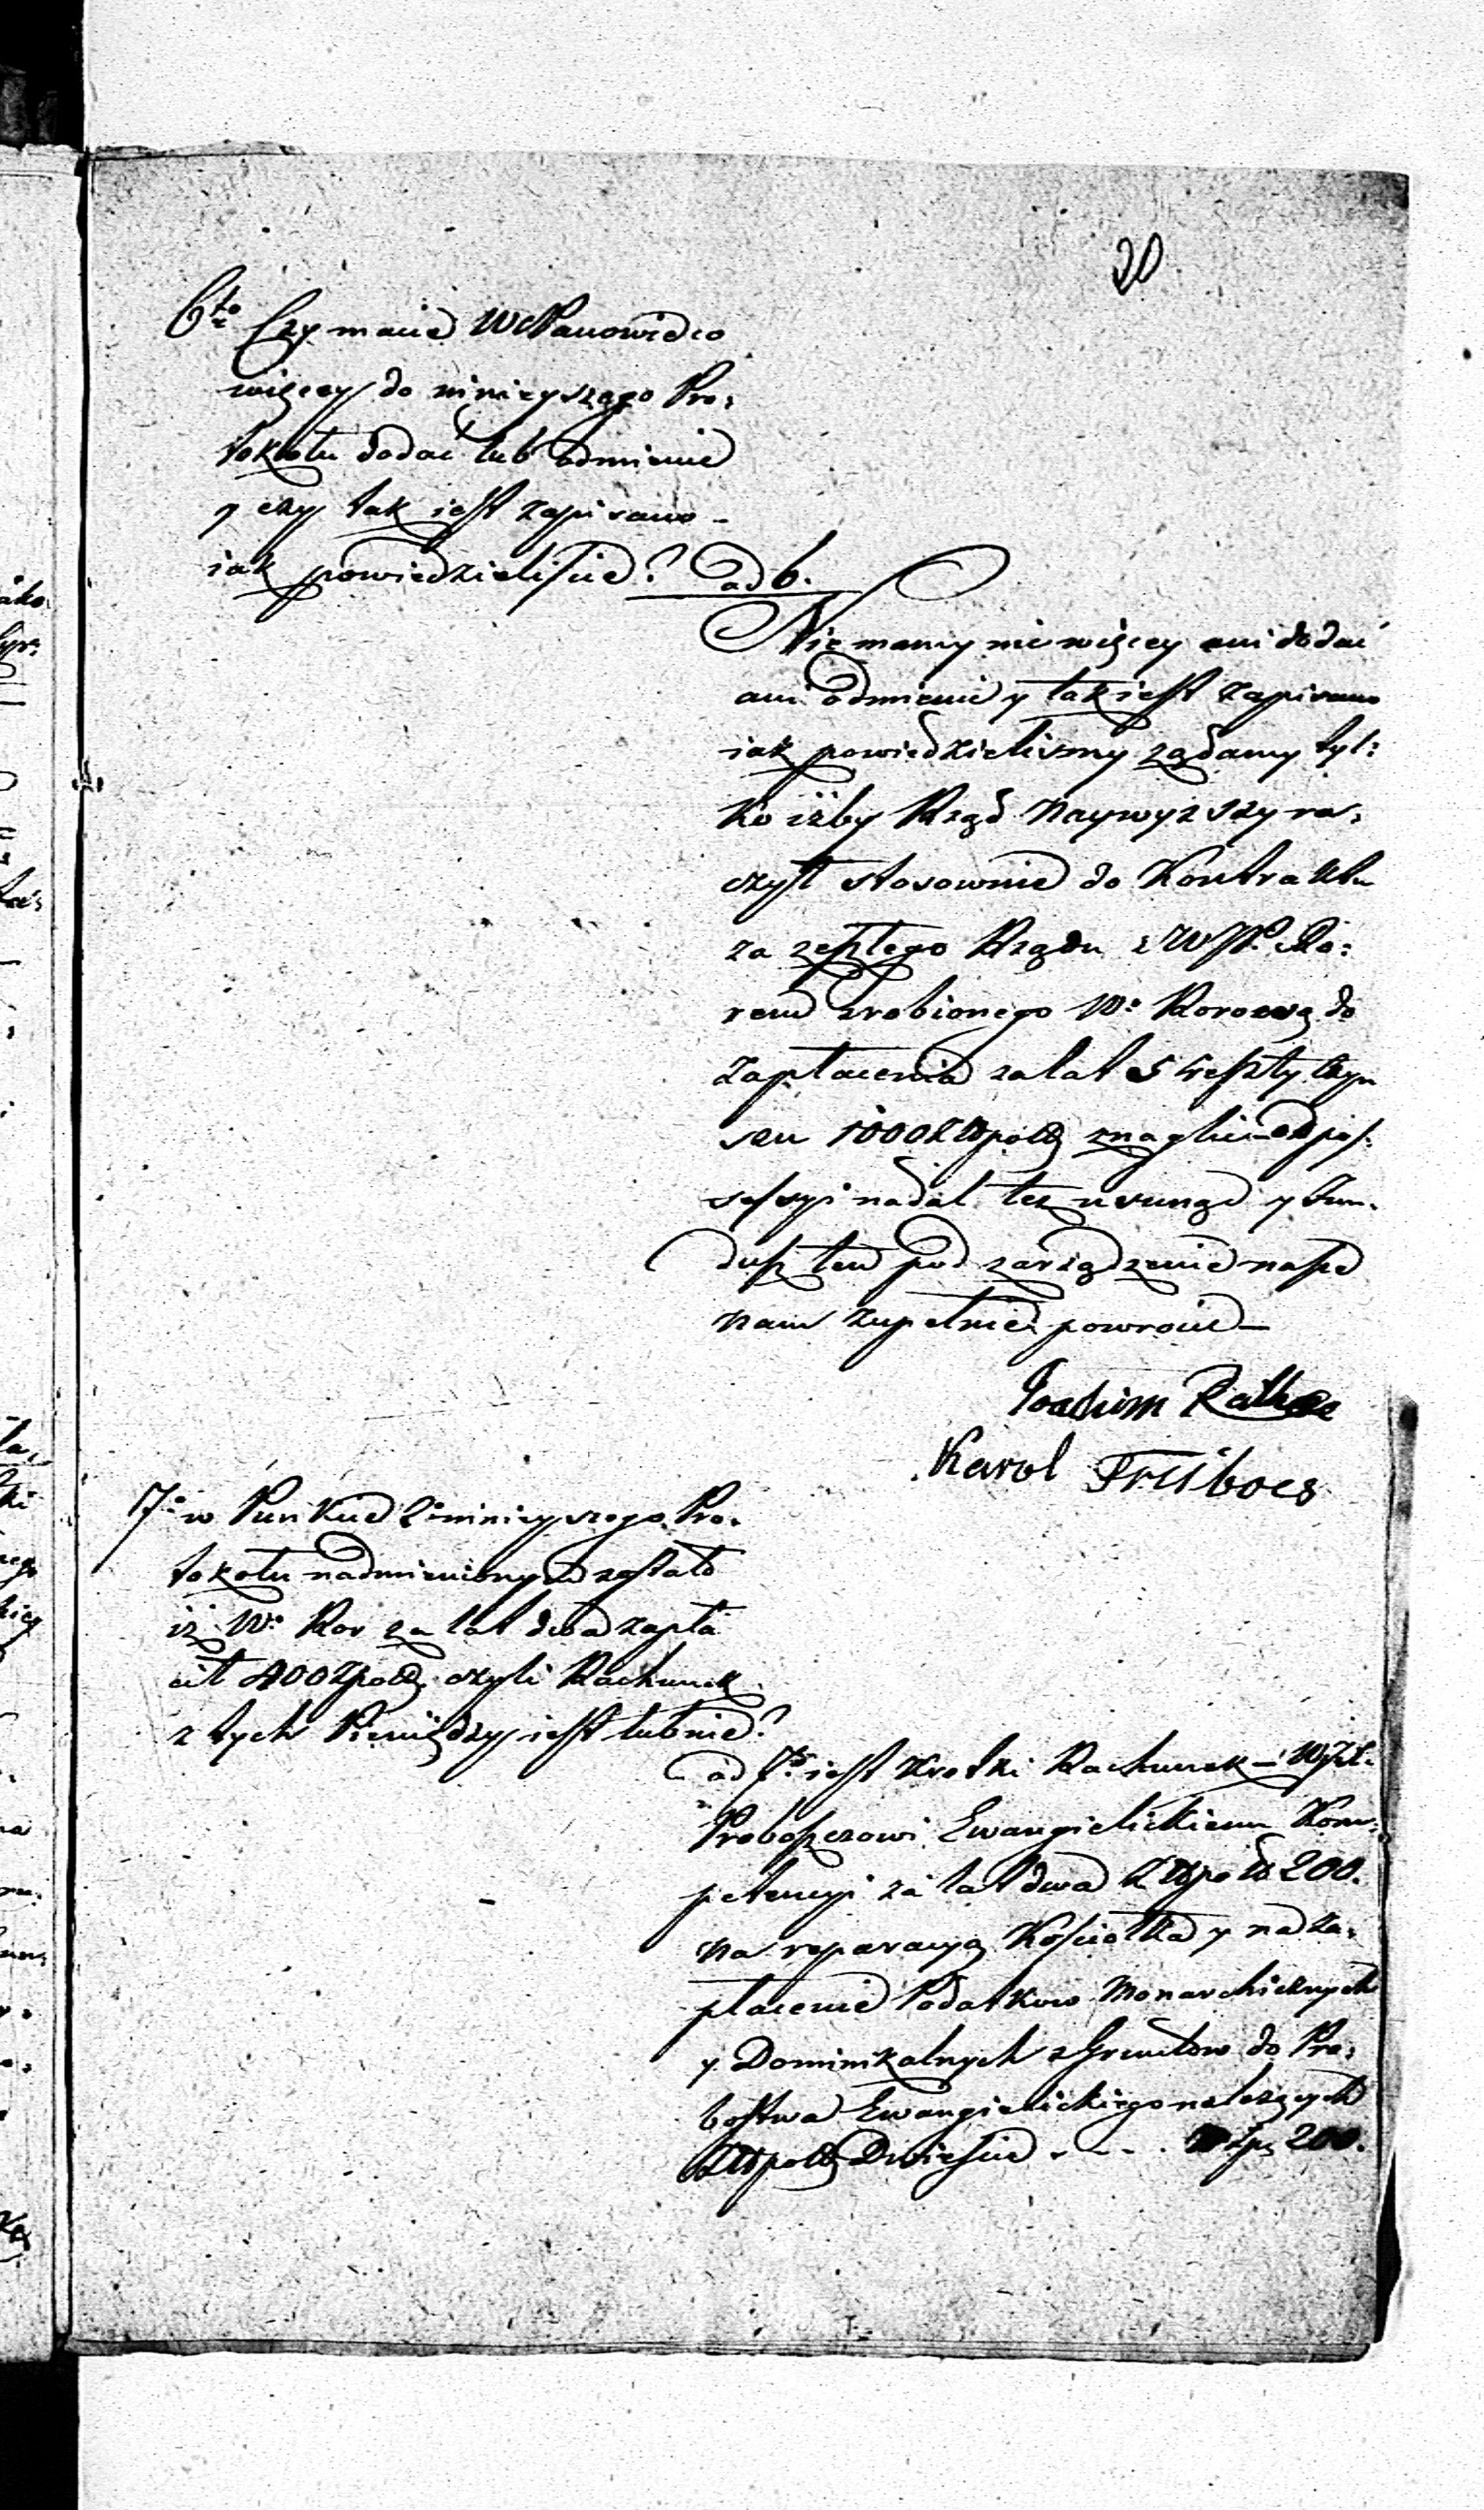 20
6to Czy macie WPanowie co
więcey do ninieyszego Pro:
tokołu dodać lub odmienić
y czy tak iest zapisano -
iak powiedzieliście? ad 6.
Nie mamy nic więcey ani dodać
ani odmienić y tak iest zapisano
iak powiedzieliśmy żądamy tyl:
ko iżby Rząd Naywyższy ra:
czył stosownie do Kontraktu
za zeszłego Rządu z
zrobionego Wo do
zapłacenia za lat 5 zeszły czyn
szu 1000 Złpols. znaglić od pos:
sessyi nadal też usunąć y Fun:
dusz ten pod zarządzenie nasze
nam zupełnie powrócić —
Joachim
Karol
7o w Punkcie 2 ninieyszego Pro:
tokołu nadmienionym zostało
iż Wo Ror za lat dwa zapła
cił 400 Zpols. czyli Rachunek
z tych Pieniędzy iest lub nie?
ad 7o iest Krotki Rachunek —
Proboszczowi Ewangielickiemu Kom:
petencyi za lat dwa Złpols 200.
na reparacyą Kościołka y na za:
płacenie Podatkow Monarchicznych
y Dominikalnych z Gruntow do Pro:
bostwa Ewangielickiego należących
Złpols Dwieście - - - . Złp. 200.